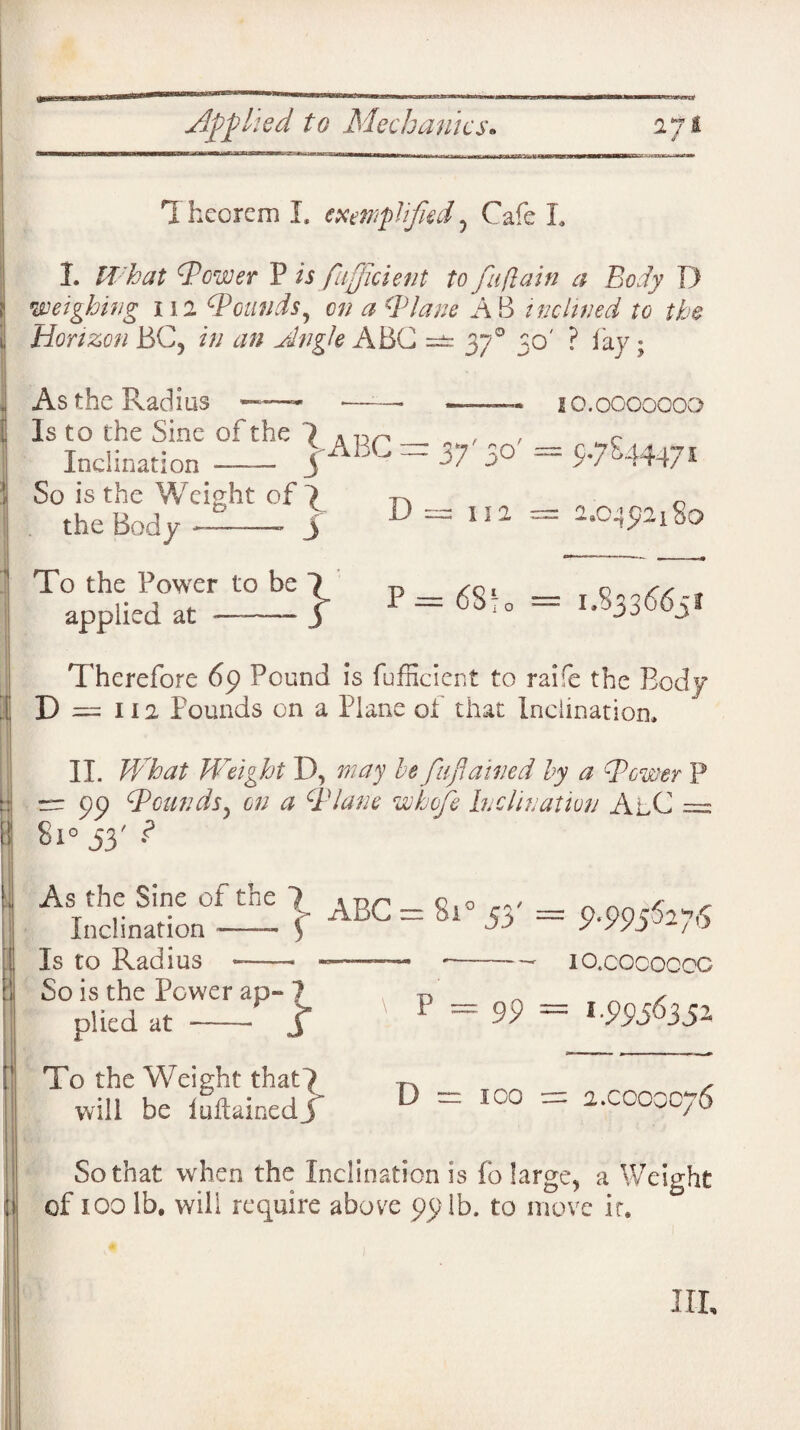 Applied to Mechanics. 271
Theorem I. exemplified, Case I.
I. What Power P is sufficient to sustain a Body D
weighing 112 Pounds, on a Plane AB inclined to the
Horizon BC, in an Angle ABC = 37° 30' ? say;
As the Radius —— —— —— 10.0000000
Is to the Sine of the Inclination —— } ABC = 37' 30' = 9.7844471
So is the Weight of the Body —— } D = 112 = 2.0492180
To the Power to be applied at —— } P = 68⅒ = 1.8336651
Therefore 69 Pound is sufficient to raise the Body
D = 112 Pounds on a Plane of that Inclination.
II. What Weight D, may be sustained by a Power P
= 99 Pounds, on a Plane whose Inclination ABC =
81° 53' ?
As the Sine of the Inclination —— } ABC = 81° 53' = 9.9956276
Is to Radius —— —— —— 10.0000000
So is the Power applied at —— } P = 99 = 1.9956352
To the Weight that will be sustained } D = 100 = 2.0000076
So that when the Inclination is so large, a Weight
of 100 lb. will require above 99 lb. to move it.
III.